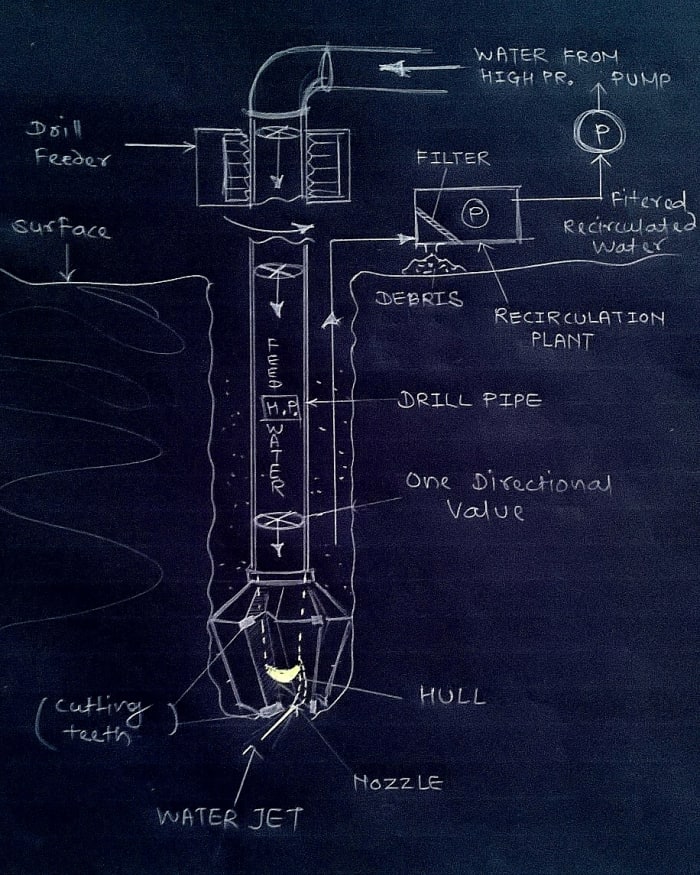 WATER FROM
HIGH PR. PUMP
Drill
Feeder
P
FILTER
P
Fitered
Recirculated
Water
Surface
DEBRIS
RECIRCULATION
PLANT
FEED
H.P.
WATER
DRILL PIPE
One Directional
Value
HULL
(Cutting
teeth)
NOZZLE
WATER JET